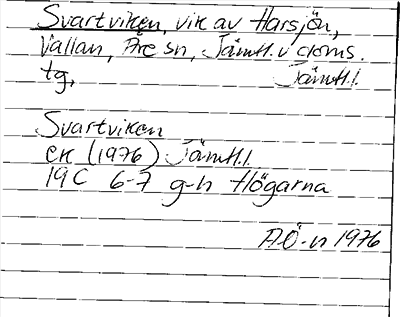 Svartviken, vik av Harsjön,
Vallan, Åre sn, Jämtl. v doms.
tg, Jämtl.l.
Svartviken
ek (1976) Jämtl.l.
19C 6-7 g-h Högarna
AÖ-n 1976